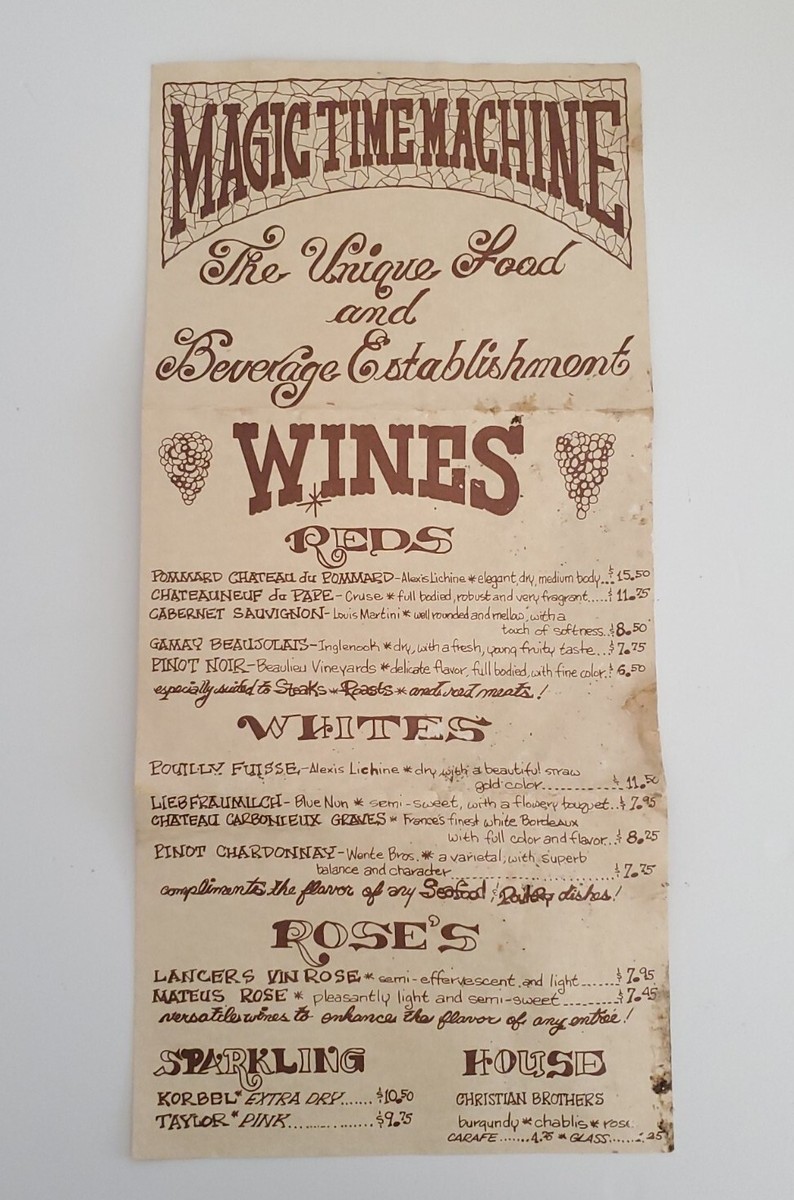 MAGIC TIME MACHINE
The Unique Food
and
Beverage Establishment
WINES
REDS
POMMARD CHATEAU du POMMARD-Alexis Lichine * elegant, dry, medium body...$15.50
CHATEAUNEUF du PAPE- Cruse * full bodied, robust and very fragrant.....$11.75
CABERNET SAUVIGNON- Louis Martini * well rounded and mellow, with a
touch of softness..$8.50
GAMAY BEAUJOLAIS-Inglenook * dry, with a fresh, young fruity taste...$7.75
PINOT NOIR-Beaulieu Vineyards * delicate flavor, full bodied, with fine color.$6.50
especially suited to Steaks * Roasts * and red meats!
WHITES
POUILLY FUISSE-Alexis Lichine * dry with a beautiful straw
gold color...............$11.50
LIEBFRAUMILCH- Blue Nun * semi-sweet, with a flowery bouquet..$7.95
CHATEAU CARBONIEUX GRAVES * France's finest white Bordeaux
with full color and flavor..$8.25
PINOT CHARDONNAY-Wente Bros. * a varietal, with superb
balance and character......................$7.75
compliments the flavor of any Seafood & Poultry dishes!
ROSE'S
LANCERS VIN ROSE * semi-effervescent and light......$7.95
MATEUS ROSE * pleasantly light and semi-sweet.........$7.45
versatile wines to enhance the flavor of any entree!
SPARKLING
KORBEL * EXTRA DRY.......$10.50
TAYLOR * PINK...............$9.75
HOUSE
CHRISTIAN BROTHERS
burgundy * chablis * rose
CARAFE.......4.75 * GLASS......1.25